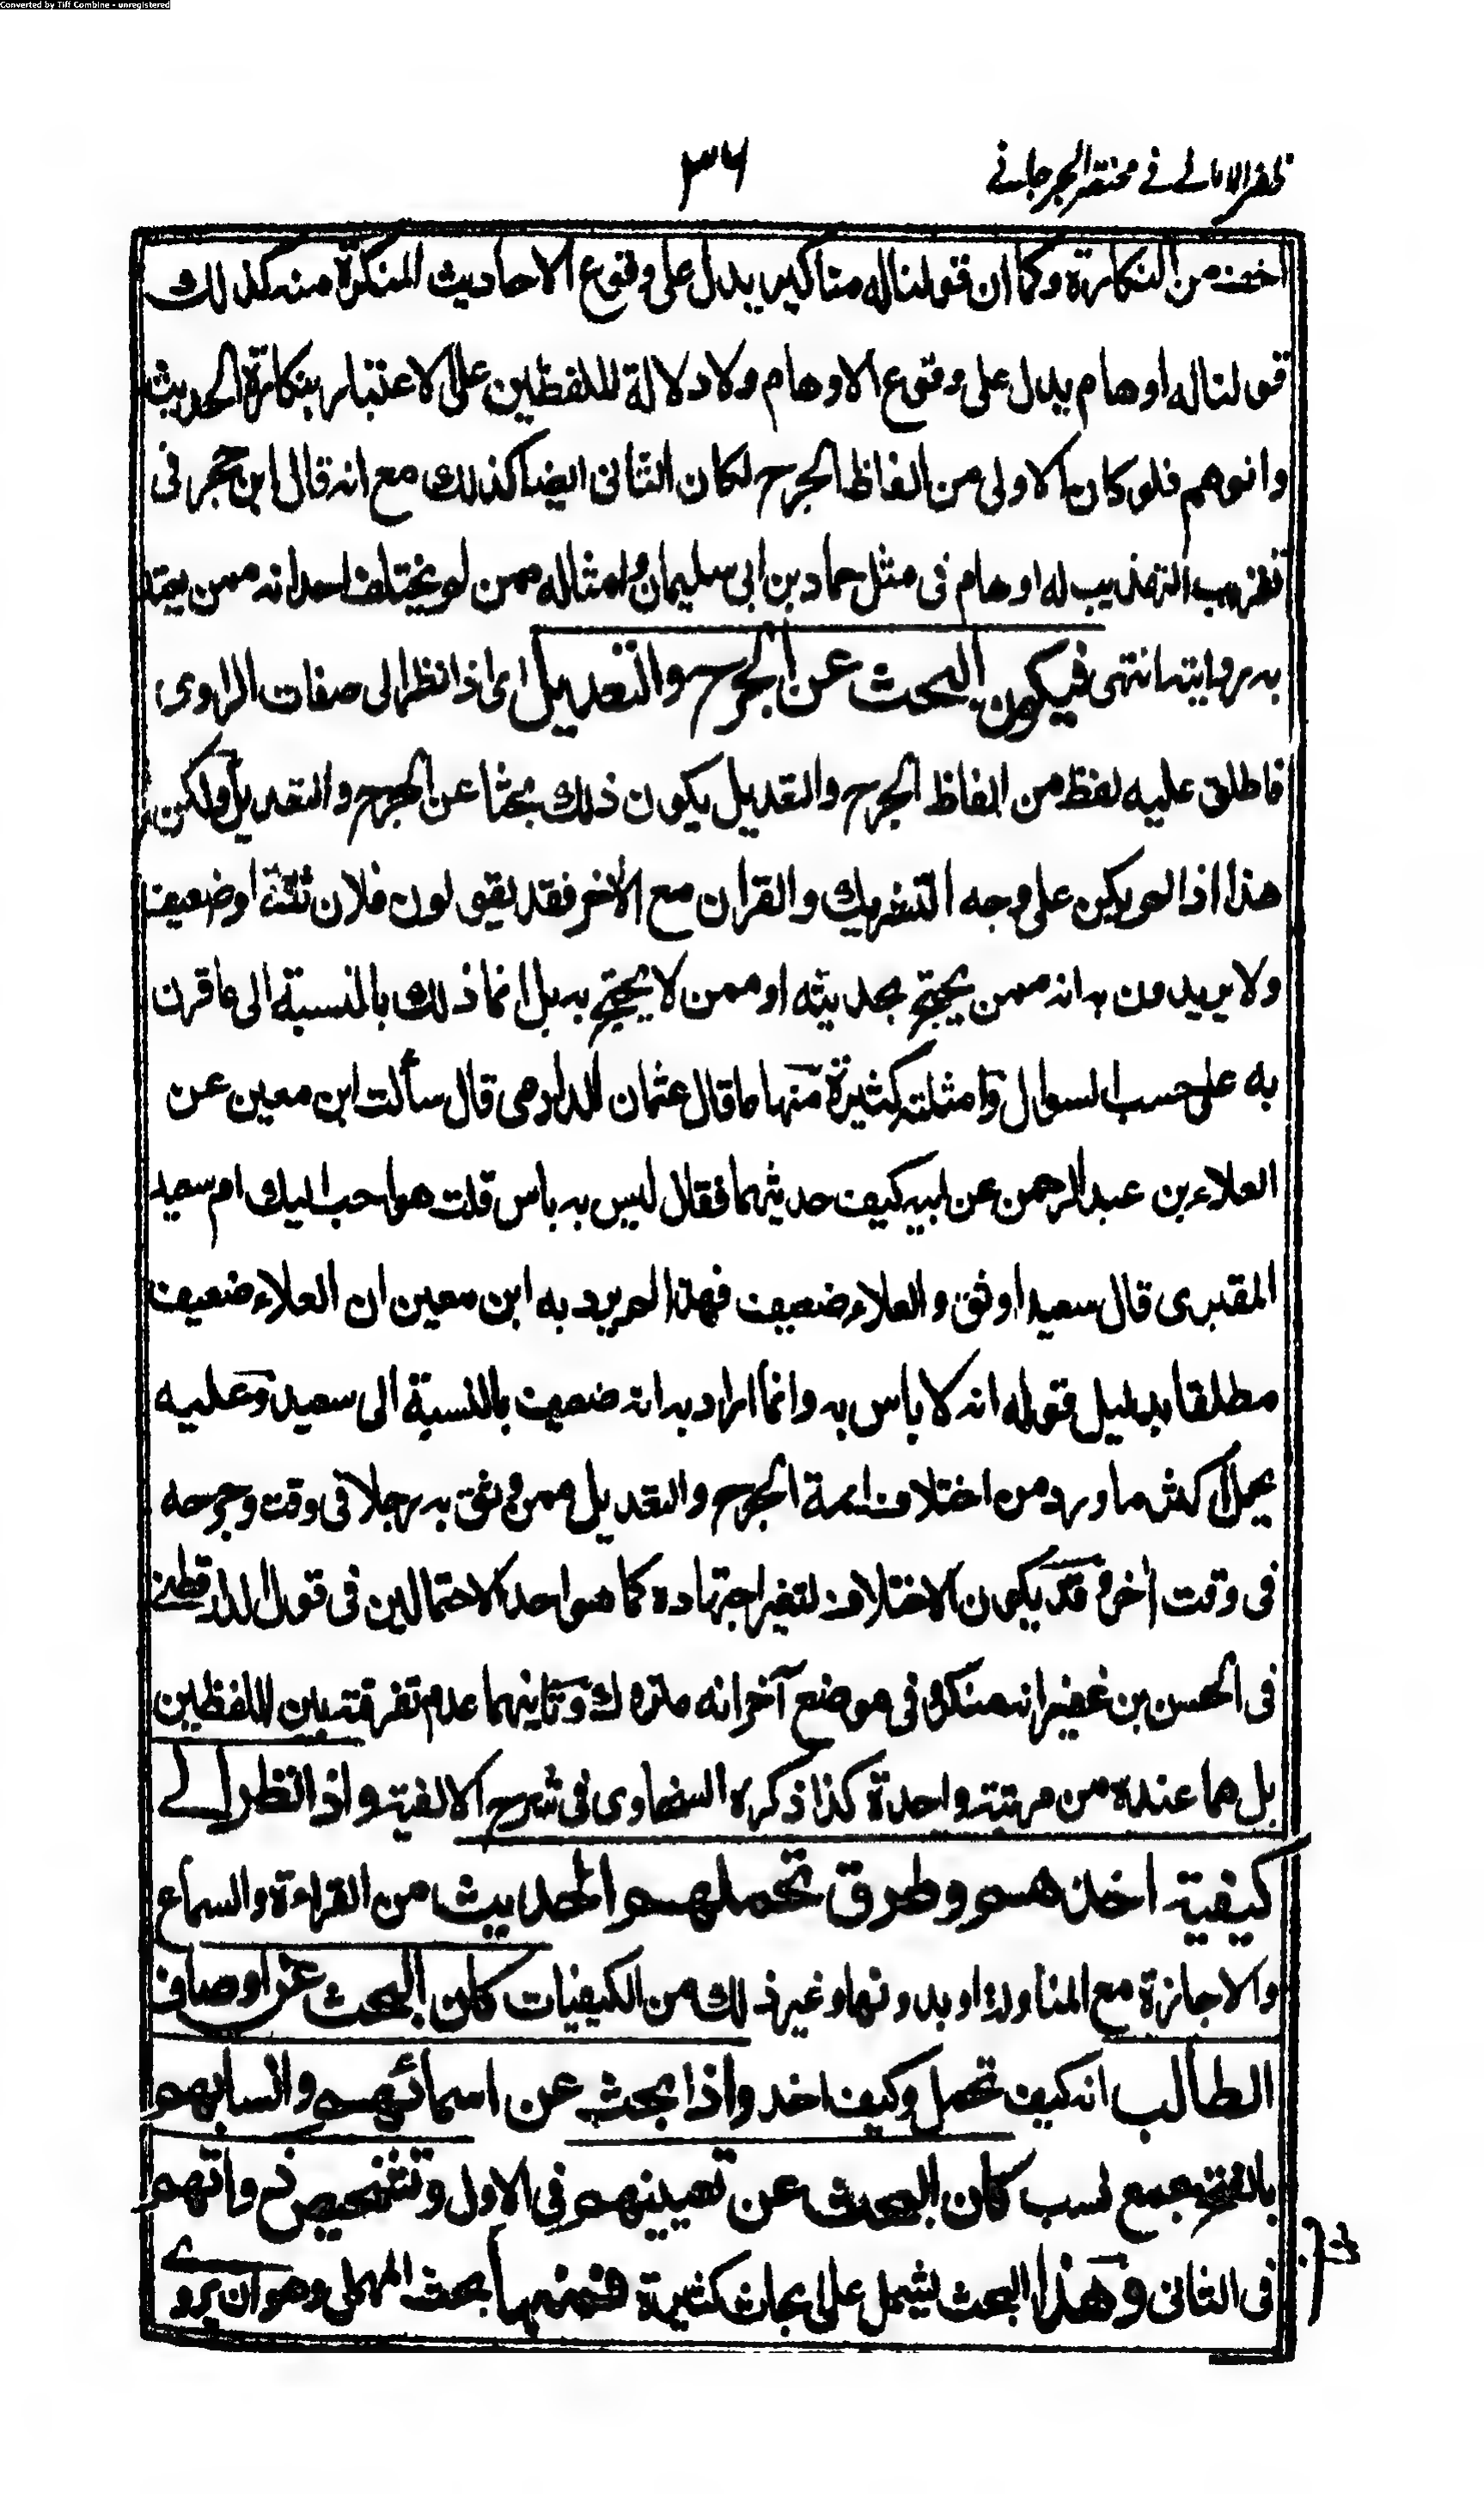 Converted by Tiff Combine - unregistered
ظفر الامانی فی مختصر الجرجانی
٣٦
اخف من النكارة وكما ان قولنا له مناكير يدل على وقوع الاحاديث المنكرة منه كذلك
قولنا له اوهام يدل على وقوع الاوهام ولا دلالة للفظين على الاعتبار بنكارة الحديث
والوهم فلو كان الاولى من الفاظ الجرح لكان الثانى ايضا كذلك مع انه قال ابن حجر فى
تقريب التهذيب له اوهام فى مثل حماد بن ابى سليمان وامثاله ممن لم يختلف احد انه ممن يعتد
به روايته انتهى فيكون البحث عن الجرح والتعديل اى اذا نظر الى صفات الراوى
فاطلق عليه لفظ من الفاظ الجرح والتعديل يكون ذلك بحثا عن الجرح والتعديل ولكن
هذا اذا لم يكن على وجه التشريك والقران مع الآخر فقد يقولون فلان ثقة او ضعيف
ولا يريدون به انه ممن يحتج بحديثه او ممن لا يحتج به بل انما ذلك بالنسبة الى ما قرن
به على حسب السوال وامثلته كثيرة منها ما قال عثمان الدارمى قال سألت ابن معين عن
العلاء بن عبد الرحمن عن ابيه كيف حديثهما فقال ليس به باس قلت هو احب اليك ام سعيد
المقبرى قال سعيد اوثق والعلاء ضعيف فهذا لم يرد به ابن معين ان العلاء ضعيف
مطلقا بدليل قوله انه لا باس به وانما اراد به انه ضعيف بالنسبة الى سعيد وعليه
يحمل اكثر ما ورد من اختلاف ائمة الجرح والتعديل ممن وثق به رجلا فى وقت وجرحه
فى وقت آخر وقد يكون الاختلاف لتغير اجتهاده كما هو احد الاحتمالين فى قول الدارقطنى
فى الحسن بن غفير انه منكر وفى موضع آخر انه متروك وثانيهما عدم تفرقته بين اللفظين
بل هما عنده من مرتبة واحدة كذا ذكره السخاوى فى شرح الالفية واذا نظر الى
كيفية اخذهم وطرق تحملهم الحديث من القراءة والسماع
والاجازة مع المناولة او بدونها وغير ذلك من الكيفيات كان البحث عن اوصاف
الطالب انه كيف تحمل وكيف اخذ واذا بحث عن اسمائهم وانسابهم
بالفتح جمع نسب كان البحث عن تعيينهم فى الاول وتشخيص ذواتهم
فى الثانى وهذا البحث يشمل على ابحاث كثيرة فمنها بحث المهمل وهو ان يروى